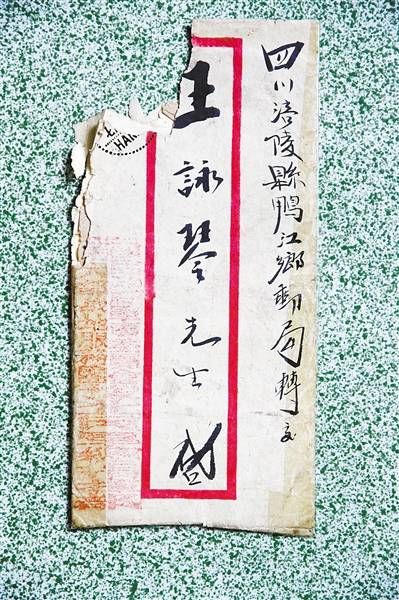 四川涪陵縣鴨江鄉郵局轉交
王詠琴先生啓
HAN